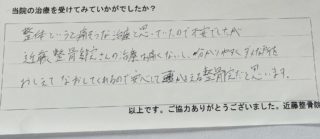 当院の治療を受けてみていかがでしたか？
整体というと痛そうな治療と思っていたので不安でしたが
近藤整骨院さんの治療は痛くないし、分かりやすくダメな所を
おしえてなおしてくれるので安心して通える整骨院だと思います。
以上です。ご協力ありがとうございました。近藤整骨院